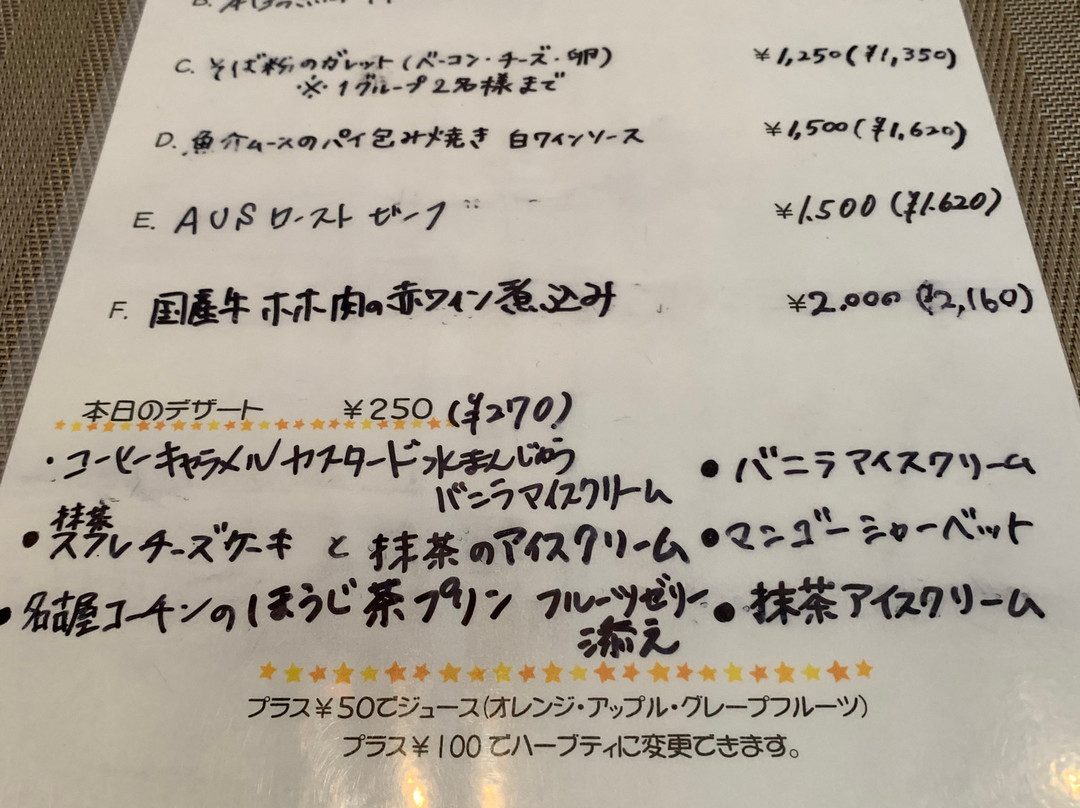 B.
C. そば粉のガレット(ベーコン・チーズ・卵) ¥1,250(¥1,350)
※1グループ2名様まで
D. 魚介ムースのパイ包み焼き 白ワインソース ¥1,500(¥1,620)
E. AUSローストビーフ ¥1.500(¥1.620)
F. 国産牛ホホ肉の赤ワイン煮込み ¥2.000(¥2,160)
本日のデザート ¥250(¥270)
・コーヒーキャラメルカスタード水まんじゅう
バニラアイスクリーム
●バニラアイスクリーム
●抹茶スフレチーズケーキと抹茶のアイスクリーム ●マンゴーシャーベット
●名古屋コーチンのほうじ茶プリン フルーツゼリー
添え
●抹茶アイスクリーム
プラス¥50でジュース(オレンジ・アップル・グレープフルーツ)
プラス¥100でハーブティに変更できます。